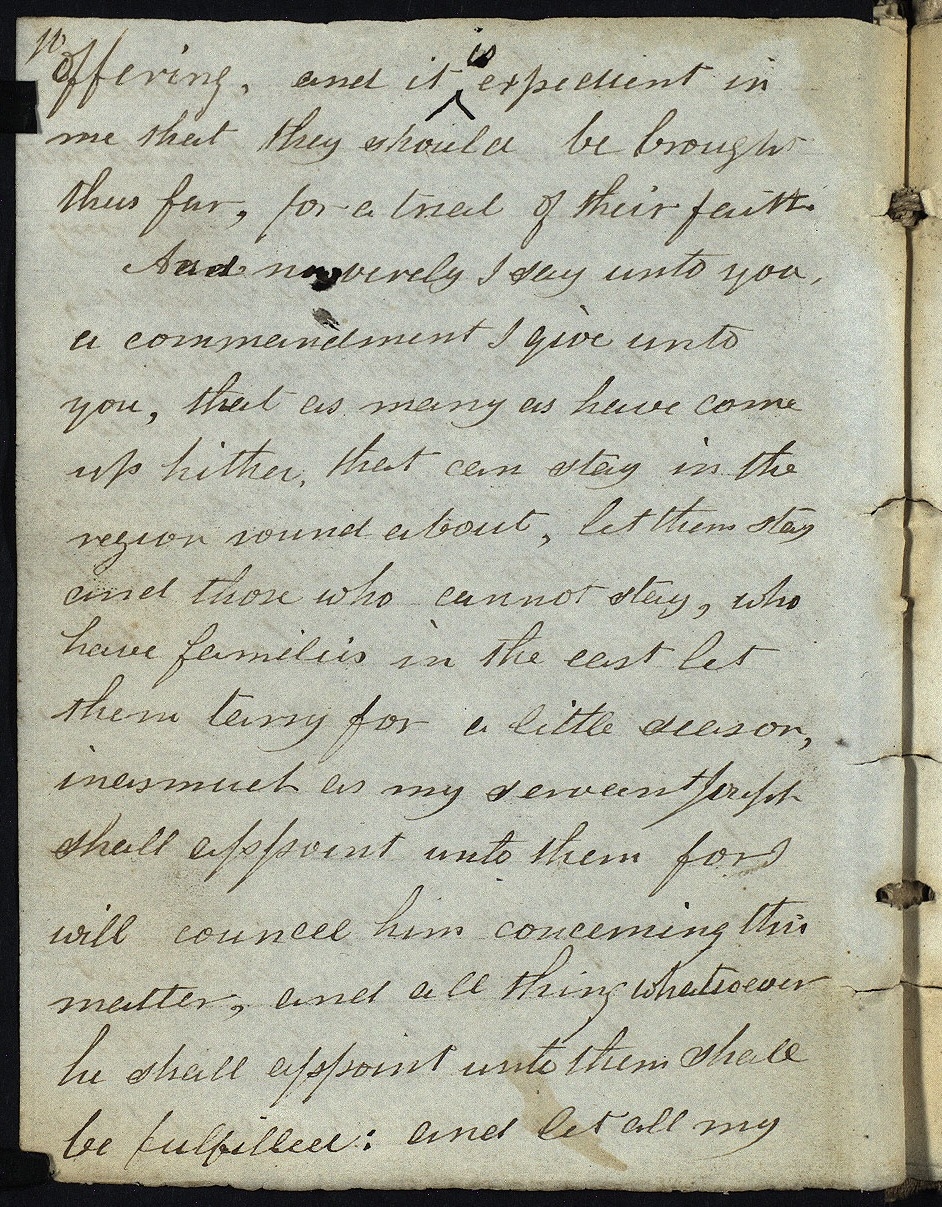 10
offering, and it is expedient in
me that they should be brought
thus far, for a trial of their faith
And now verily I say unto you,
a commandment I give unto
you, that as many as have come
up hither, that can stay in the
region round about, let them stay
and those who cannot stay, who
have families in the east let
them tarry for a little season,
inasmuch as my servant Joseph
shall appoint unto them for I
will councel him concerning this
matter, and all thing whatsoever
he shall appoint unto them shall
be fulfilled: and let all my